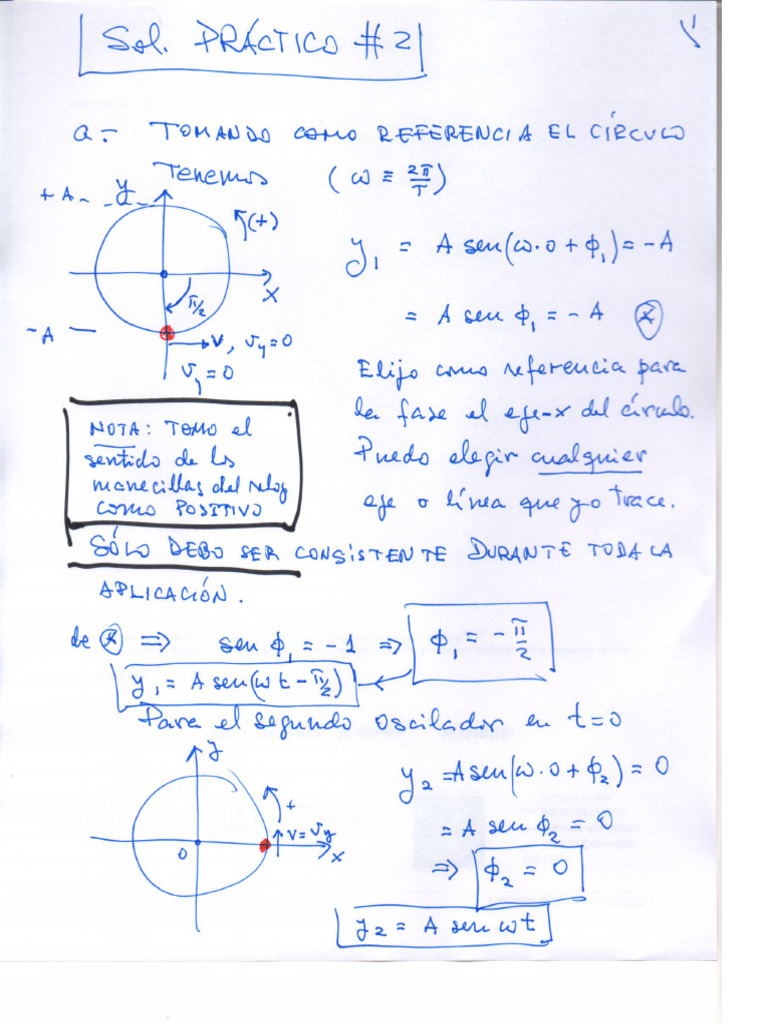 Sol. PRÁCTICO #2
1/
a.- TOMANDO COMO REFERENCIA EL CÍRCULO
Tenemos (ω ≡ 2π/T)
+A
y
(+)
x
π/2
-A
v, v_y=0
v_y=0
y₁ = A sen(ω·0+φ₁)=-A
= A sen φ₁ = -A (*)
Elijo como referencia para
la fase el eje-x del círculo.
Puedo elegir cualquier
eje o línea que yo trace.
NOTA: TOMO el
sentido de las
manecillas del reloj
como POSITIVO
SÓLO DEBO SER CONSISTENTE DURANTE TODA LA
APLICACIÓN.
de (*) ⇒ sen φ₁ = -1 ⇒ φ₁ = -π/2
y₁ = A sen(ωt-π/2)
Para el segundo oscilador en t=0
y
+
v=v_y
0
x
y₂ = A sen(ω·0+φ₂) = 0
= A sen φ₂ = 0
⇒ φ₂ = 0
y₂ = A sen ωt